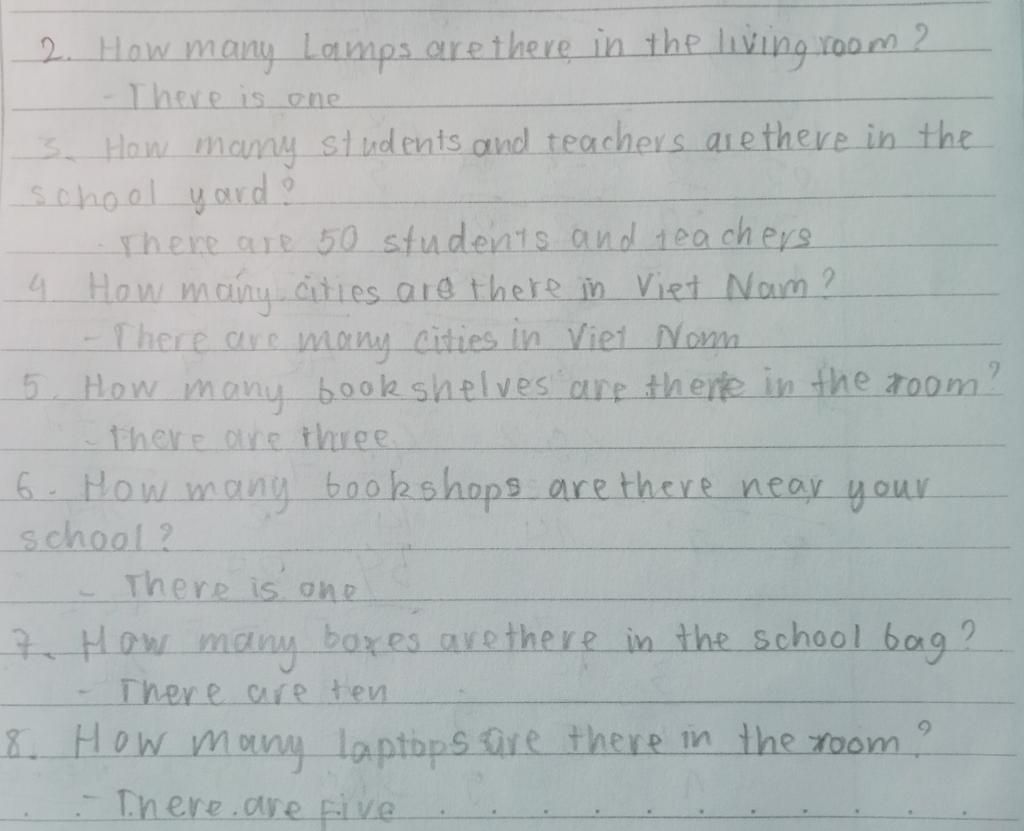 2. How many Lamps are there in the living room?
- There is one
3. How many students and teachers are there in the
school yard?
- There are 50 students and teachers
4 How many cities are there in Viet Nam?
- There are many cities in Viet Nam
5. How many bookshelves are there in the room?
- there are three
6. How many bookshops are there near your
school?
- There is one
7. How many boxes are there in the school bag?
- There are ten
8. How many laptops are there in the room?
- There are Five